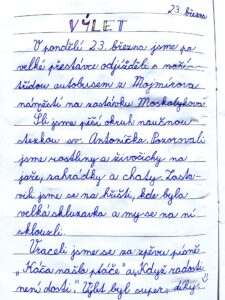 23. března
VÝLET
V pondělí 23. března jsme po
velké přestávce odjížděli s naší
třídou autobusem z Mojmírova
náměstí na zastávku Moskalykova.
Šli jsme pěší okruh naučnou
stezkou sv. Antoníčka. Pozorovali
jsme rostliny a živočichy na
jaře, zahrádky a chaty. Zasta-
vili jsme se na hřišti, kde byla
velká skluzavka a my se na ní
sklouzli.
Vraceli jsme se za zpěvu písně
„Káča našla ptáče a „Když radosti
není dosti." Výlet byl super, díky